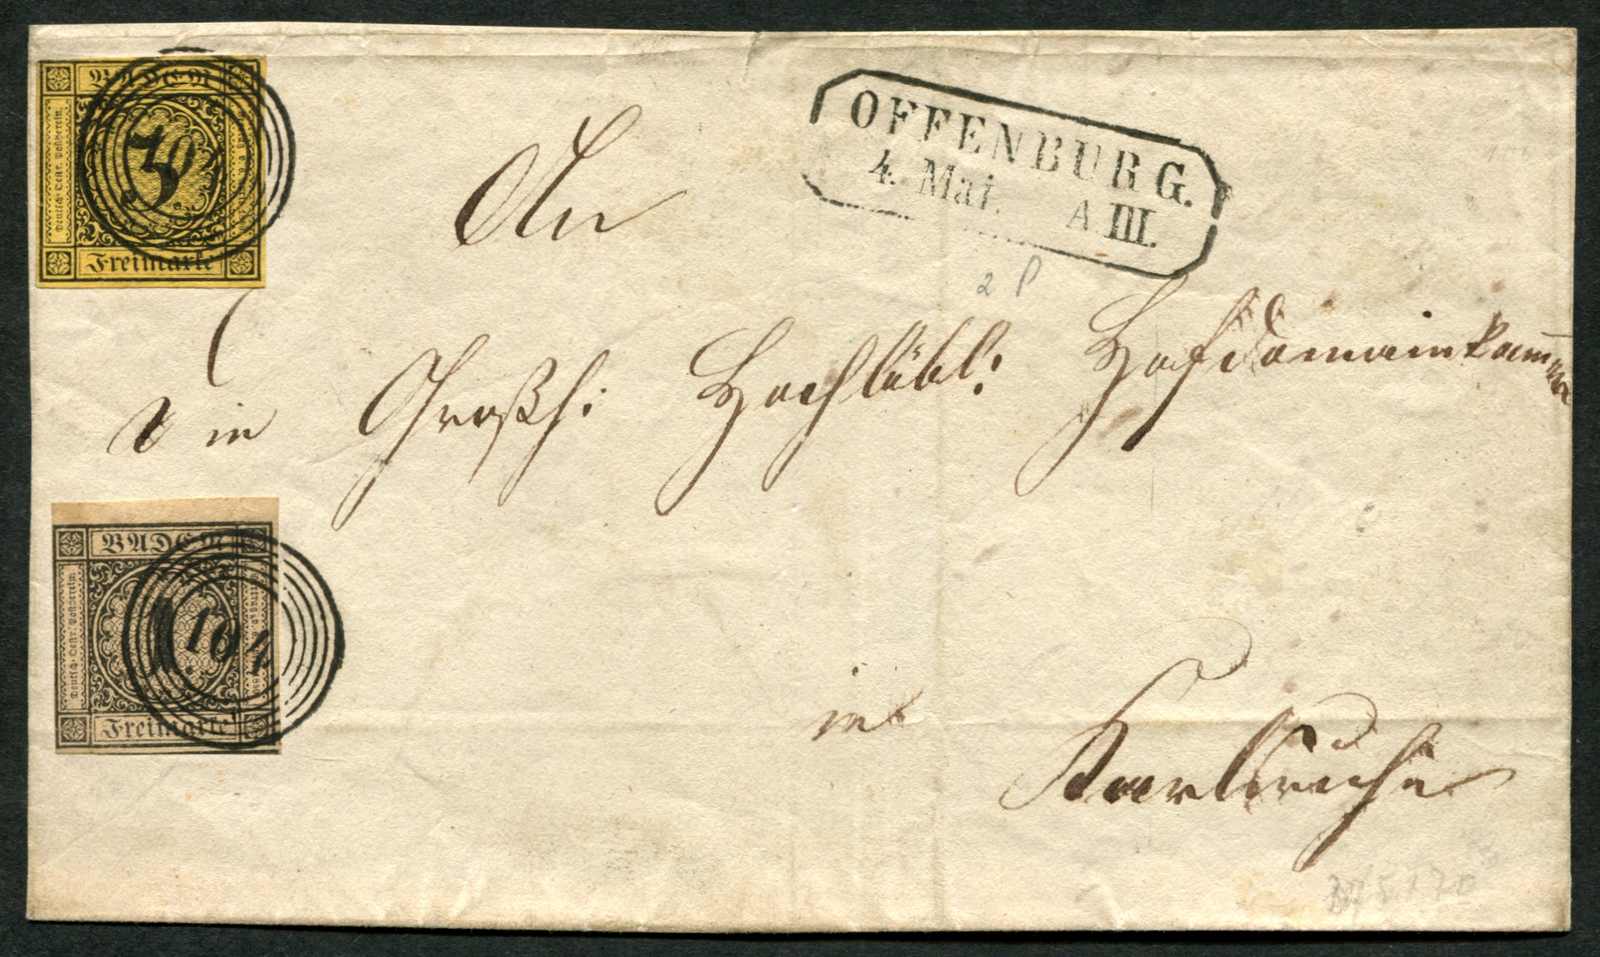 BADEN
Deutsch-Oestr. Postverein.
3
Freimarke
OFFENBURG.
4. Mai. A III.
An
2 P
die Großh: Hochlöbl: Hofdomainenkammer
BADEN
Deutsch-Oestr. Postverein.
104
Freimarke
in
Karlsruhe